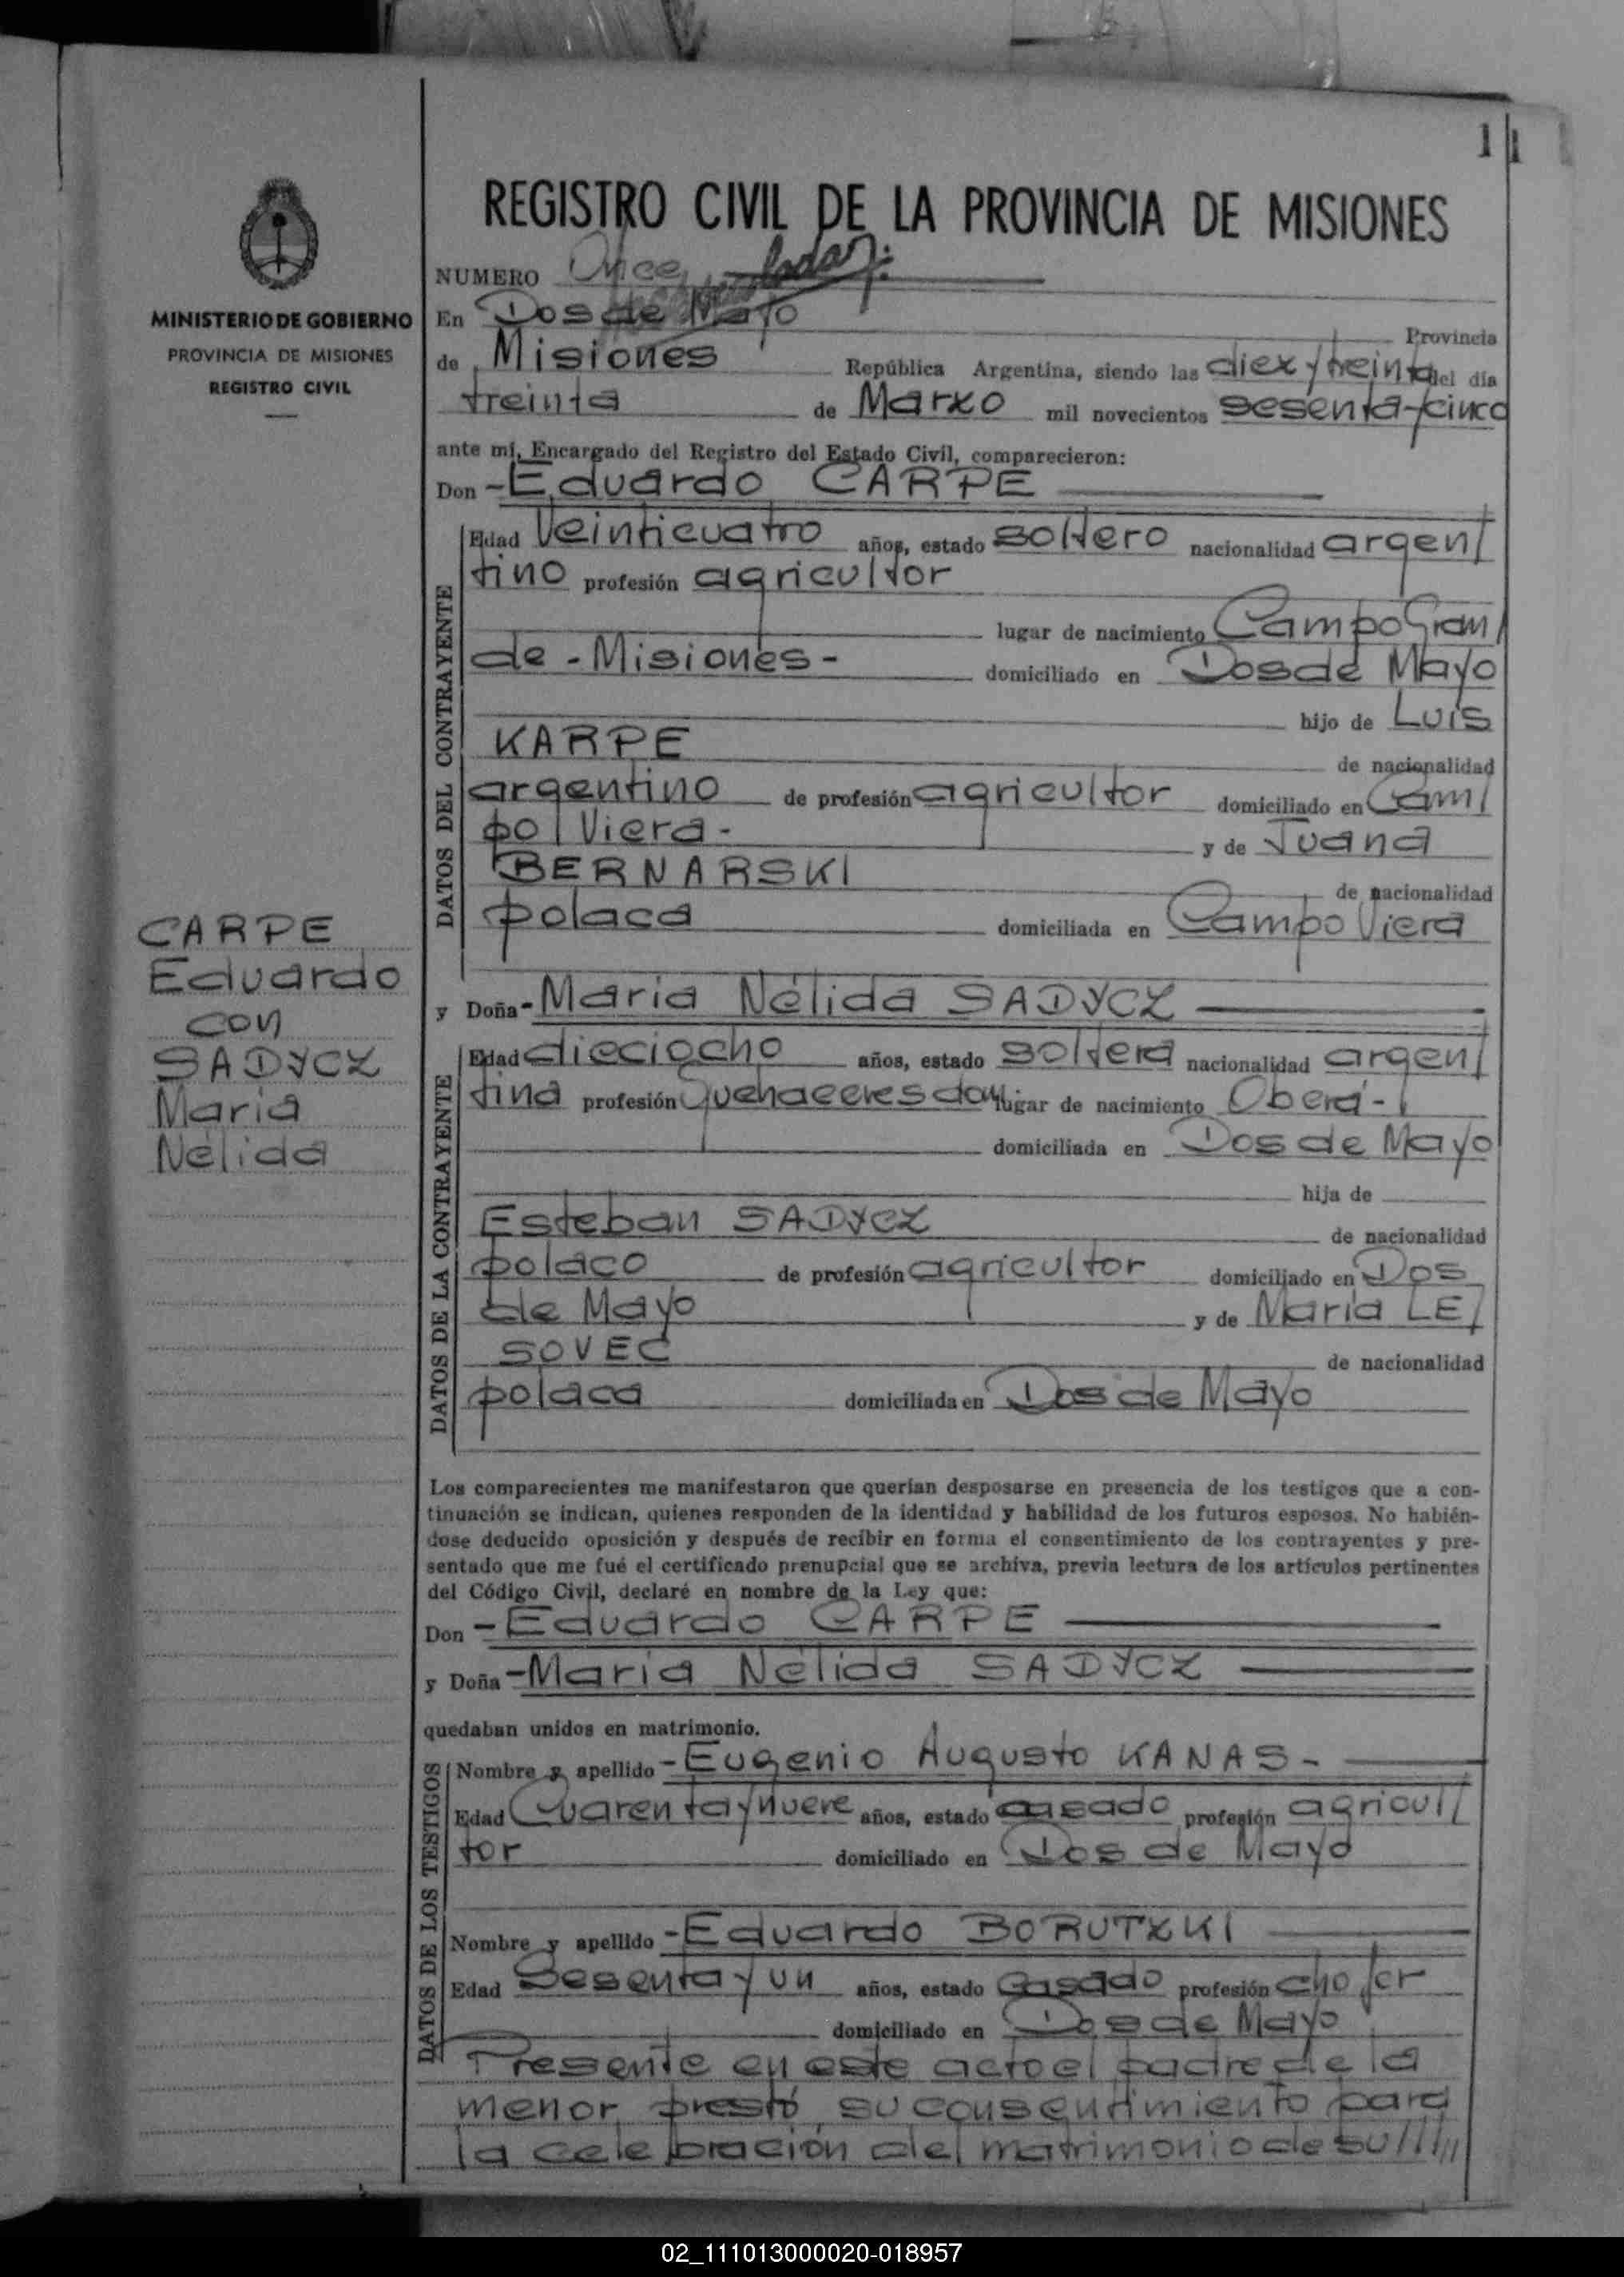 11
REGISTRO CIVIL DE LA PROVINCIA DE MISIONES
NUMERO Once
MINISTERIO DE GOBIERNO
PROVINCIA DE MISIONES
REGISTRO CIVIL
En Dos de Mayo Provincia
de Misiones República Argentina, siendo las diez y treinta del día
treinta de Marzo mil novecientos sesenta y cinco
ante mí, Encargado del Registro del Estado Civil, comparecieron:
Don - Eduardo CARPE
DATOS DEL CONTRAYENTE
Edad Veinticuatro años, estado soltero nacionalidad argen/
tino profesión agricultor
lugar de nacimiento Campo Gran/
de - Misiones - domiciliado en Dos de Mayo
hijo de Luis
KARPE de nacionalidad
argentino de profesión agricultor domiciliado en Cam/
po/Viera - y de Juana
BERNARSKI de nacionalidad
polaca domiciliada en Campo Viera
CARPE
Eduardo
con
SADYCZ
Maria
Nélida
y Doña - Maria Nélida SADYCZ
DATOS DE LA CONTRAYENTE
Edad dieciocho años, estado soltera nacionalidad argen/
tina profesión Quehaceres dom lugar de nacimiento Oberá -
domiciliada en Dos de Mayo
hija de
Esteban SADYCZ de nacionalidad
polaco de profesión agricultor domiciliado en Dos
de Mayo y de Maria LE/
SOVEC de nacionalidad
polaca domiciliada en Dos de Mayo
Los comparecientes me manifestaron que querían desposarse en presencia de los testigos que a con-
tinuación se indican, quienes responden de la identidad y habilidad de los futuros esposos. No habién-
dose deducido oposición y después de recibir en forma el consentimiento de los contrayentes y pre-
sentado que me fué el certificado prenupcial que se archiva, previa lectura de los artículos pertinentes
del Código Civil, declaré en nombre de la Ley que:
Don - Eduardo CARPE
y Doña - Maria Nélida SADYCZ
quedaban unidos en matrimonio.
DATOS DE LOS TESTIGOS
Nombre y apellido - Eugenio Augusto KANAS -
Edad Cuarenta y nueve años, estado casado profesión agricul/
tor domiciliado en Dos de Mayo
Nombre y apellido - Eduardo BORUTZKI
Edad Sesenta y un años, estado Casado profesión chofer
domiciliado en Dos de Mayo
Presente en este acto el padre de la
menor, prestó su consentimiento para
la celebración del matrimonio de su/////
02_111013000020-018957